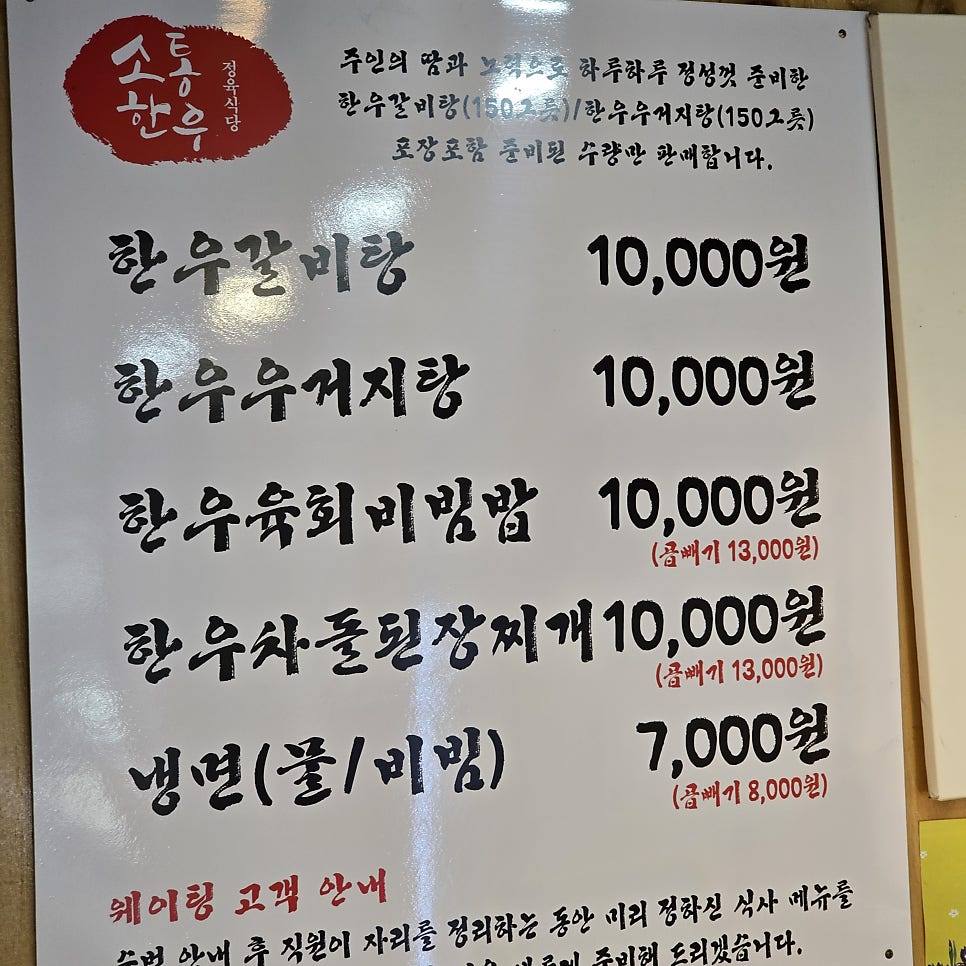 소통
한우
정육식당
주인의 땀과 노력으로 하루하루 정성껏 준비한
한우갈비탕(150그릇)/한우우거지탕(150그릇)
포장포함 준비된 수량만 판매합니다.
한우갈비탕 10,000원
한우우거지탕 10,000원
한우육회비빔밥 10,000원
(곱빼기 13,000원)
한우차돌된장찌개 10,000원
(곱빼기 13,000원)
냉면(물/비빔) 7,000원
(곱빼기 8,000원)
웨이팅 고객 안내
순번 안내 후 직원이 자리를 정리하는 동안 미리 정하신 식사 메뉴를
준비해 드리겠습니다.